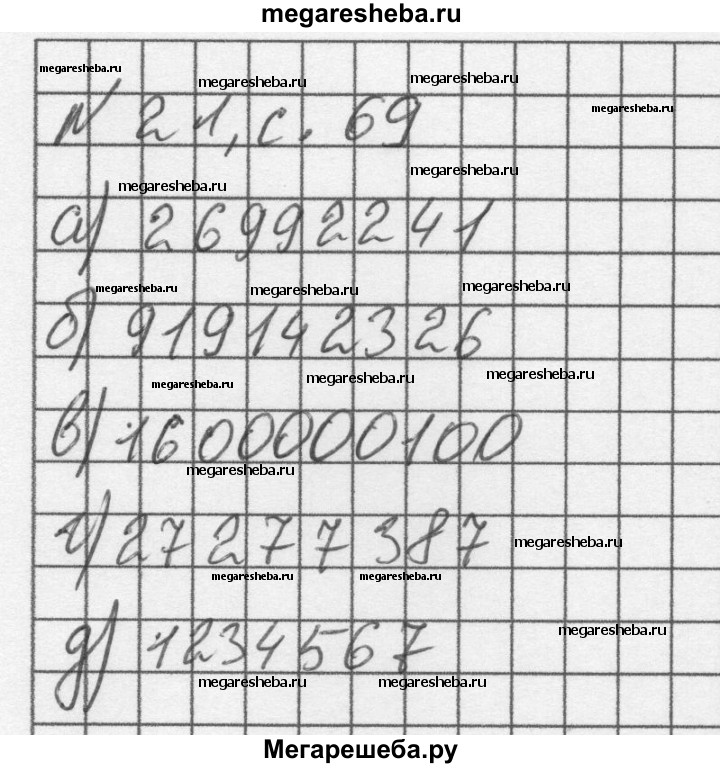 megaresheba.ru
megaresheba.ru megaresheba.ru megaresheba.ru megaresheba.ru
N 21, с. 69
megaresheba.ru megaresheba.ru
а) 26992241
megaresheba.ru megaresheba.ru megaresheba.ru
б) 919142326
megaresheba.ru megaresheba.ru megaresheba.ru
в) 1600000100
megaresheba.ru
г) 272777387 megaresheba.ru
megaresheba.ru megaresheba.ru
д) 1234567 megaresheba.ru
megaresheba.ru megaresheba.ru
Мегарешеба.ру